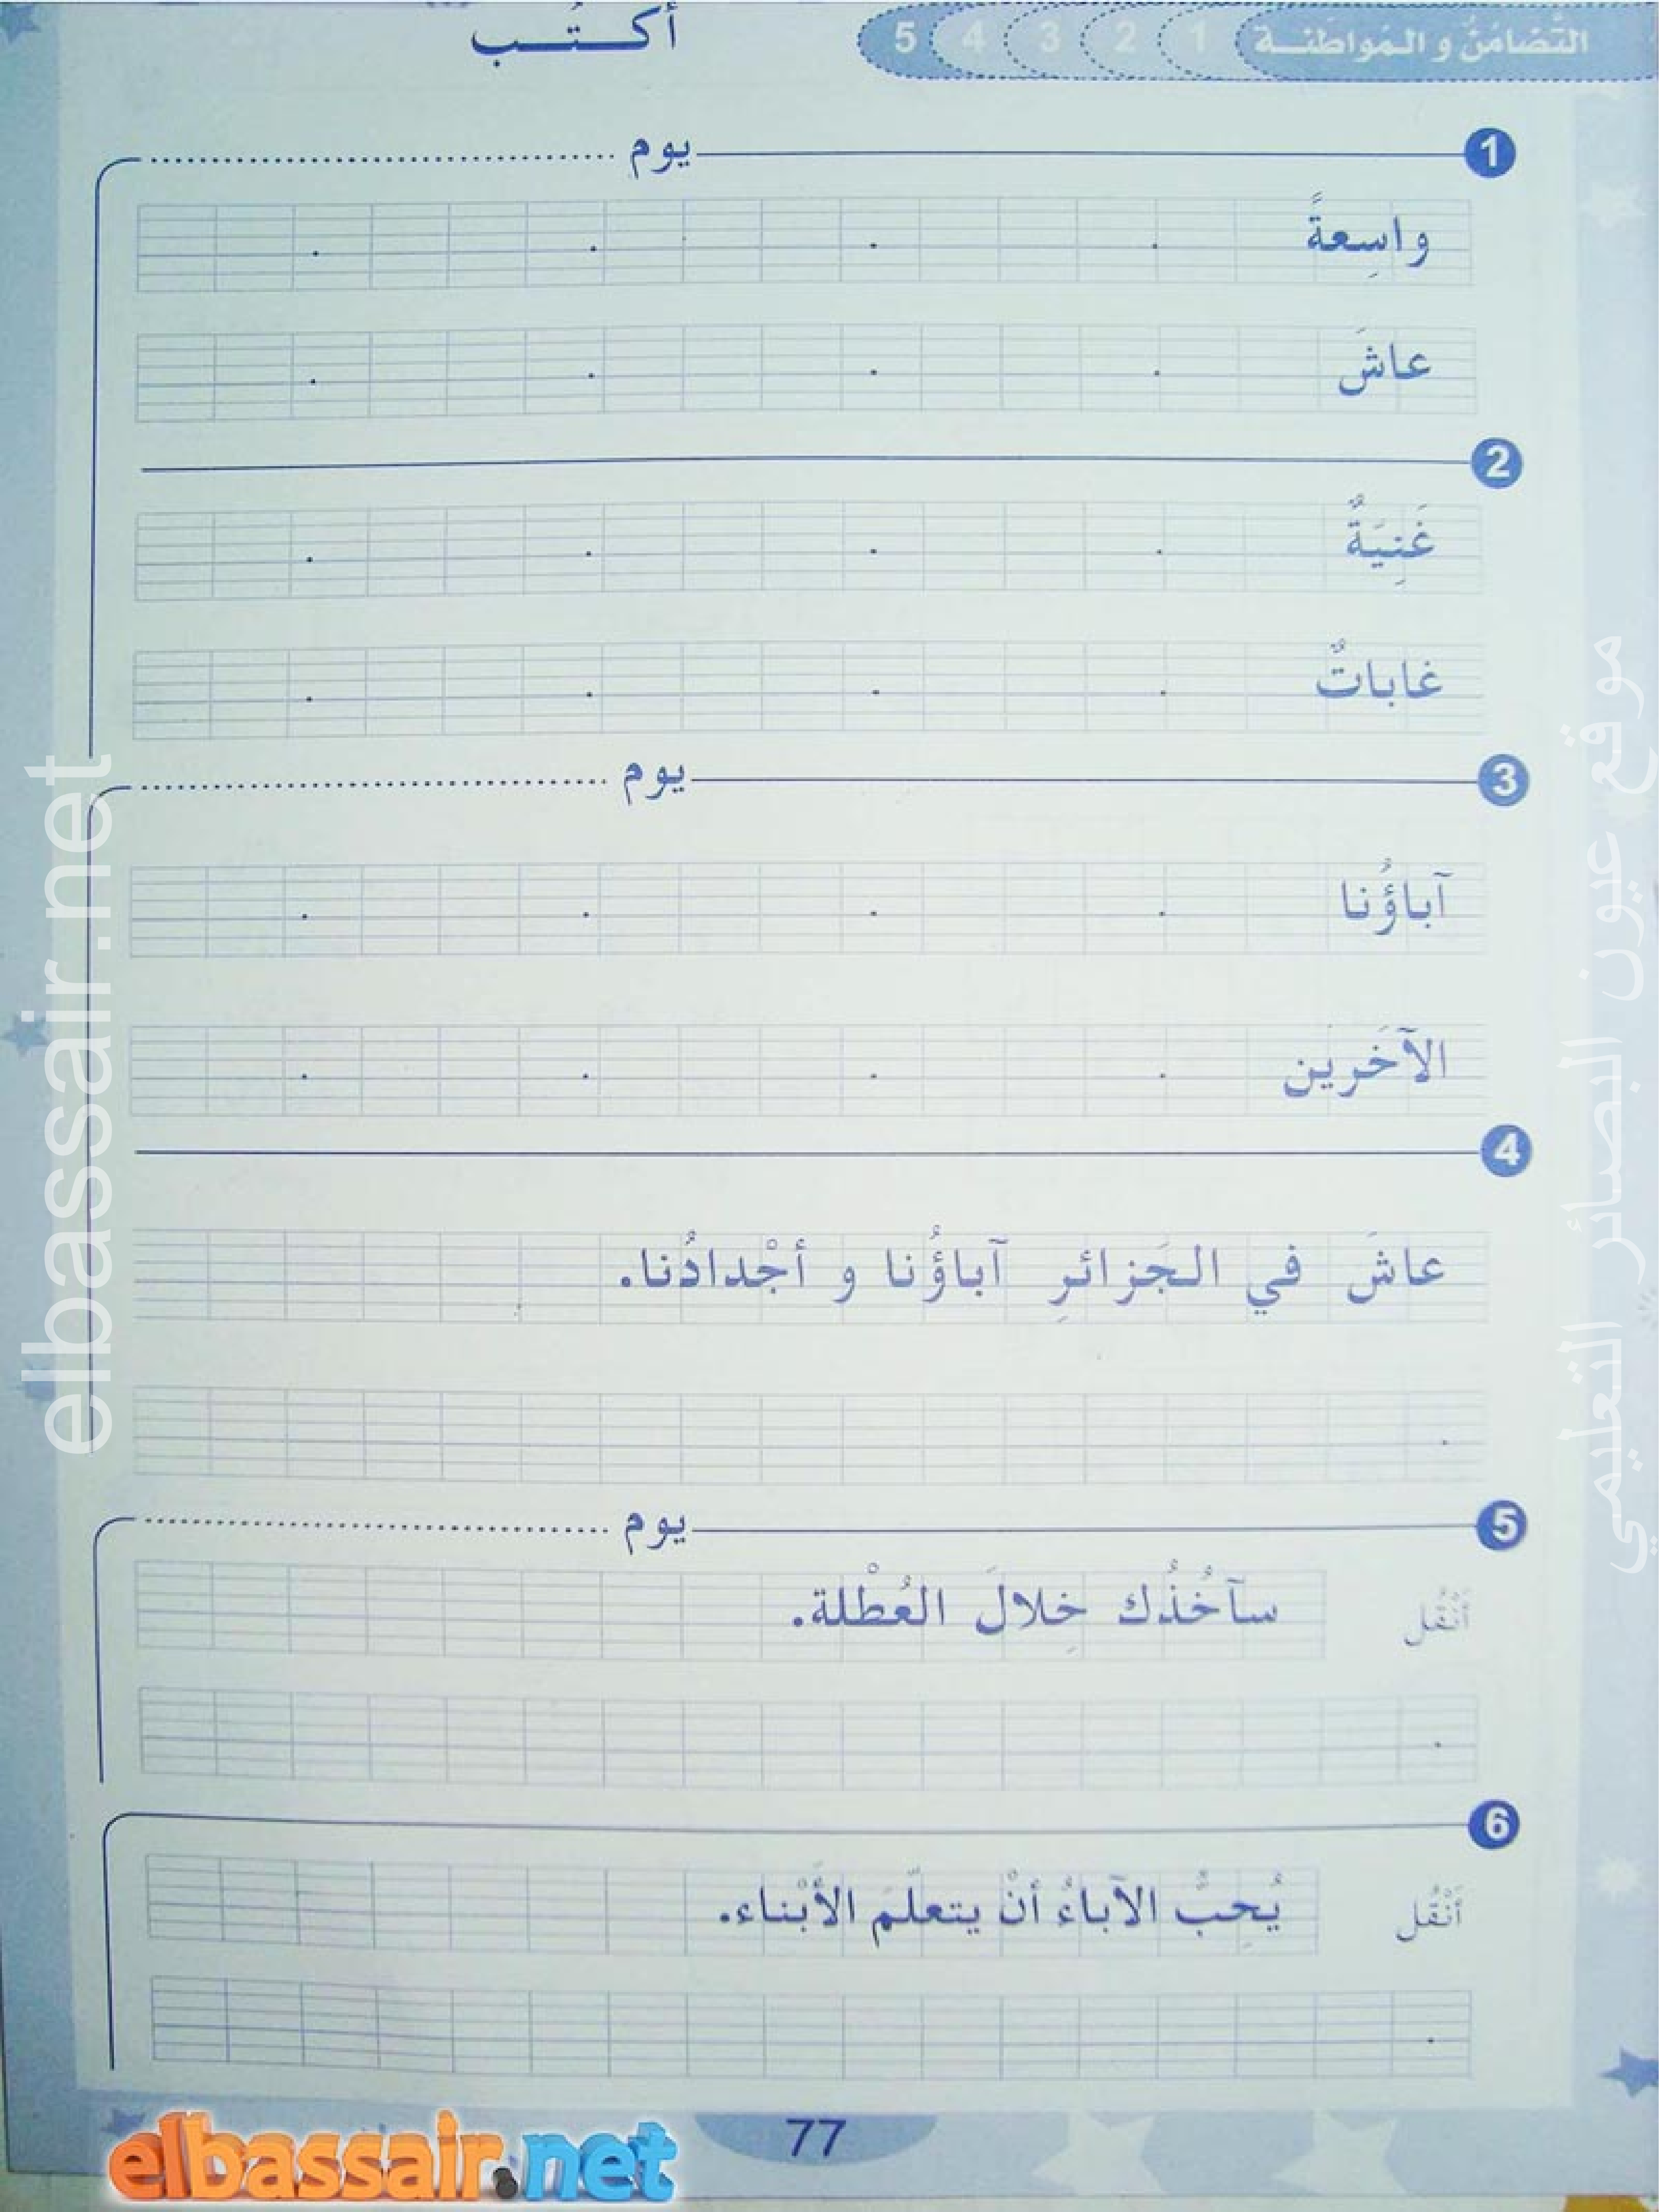 التَّضامُنُ و المُواطَنة 1 2 3 4 5
أكتُب
1 يوم
واسِعةً
عاشَ
2
غَنِيَةٌ
غاباتٌ
3 يوم
آباؤُنا
الآخَرين
4
عاشَ في الجَزائرِ آباؤُنا و أجْدادُنا.
5 يوم
أنْقُل سآخُذُك خِلالَ العُطْلة.
6
أَنْقُل يُحِبُّ الآباءُ أنْ يتعلّمَ الأَبْناء.
77
elbassair.net
elbassair.net
موقع عيون البصائر التعليمي